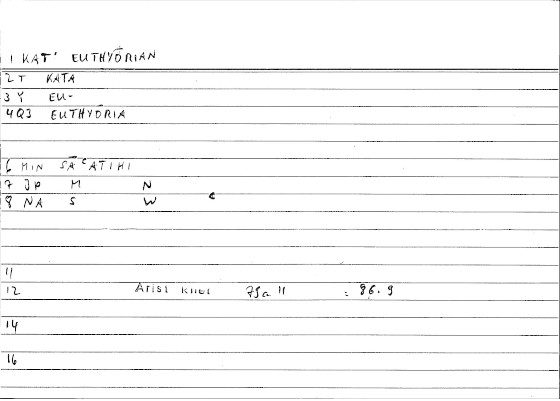 1 KAT' EUTHYŌRIAN
2 T KATA
3 Y EU-
4 Q3 EUTHYŌRIA
6 MIN SĀʿATIHI
7 JP M N
8 NA S W ʿ
11
12 Arist RHet 75a11 : 86.9
14
16